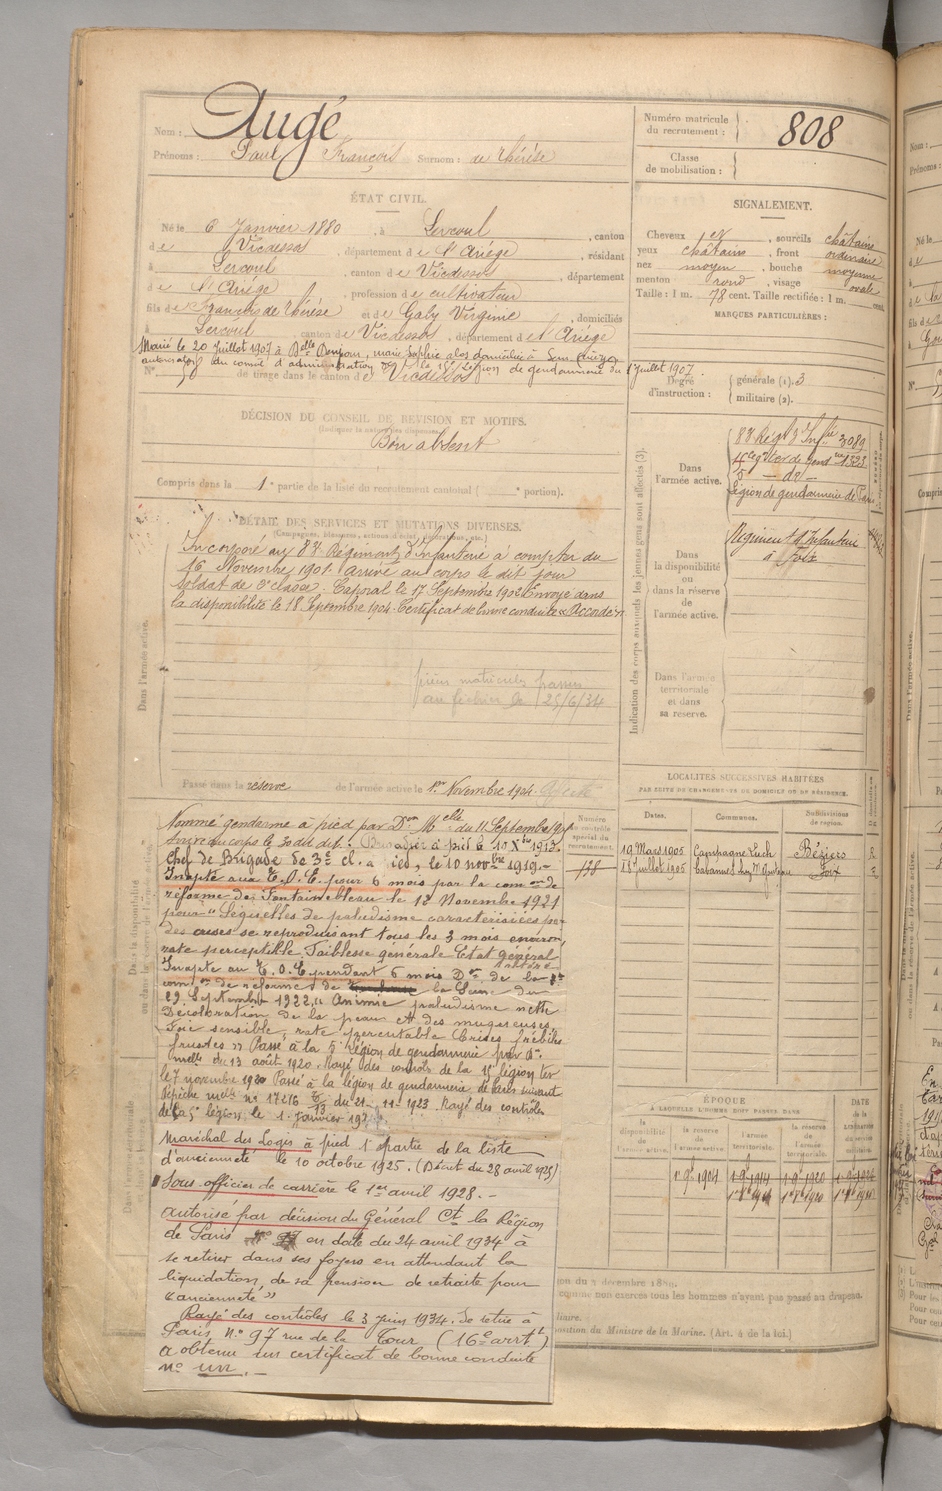 Nom : Augé
Prénoms : Paul François Surnom : de Thérèse
Numéro matricule du recrutement : 808
Classe de mobilisation :
ÉTAT CIVIL.
Né le 6 Janvier 1880, à Lercoul, canton
de Vicdessos, département de l'Ariège, résidant
à Lercoul, canton de Vicdessos, département
de l'Ariège, profession de cultivateur
fils de François de Thérèse et de Gaby Virginie, domiciliés
à Lercoul, canton de Vicdessos, département de l'Ariège
Marié le 20 Juillet 1907 à Belle Dempou, marie Sophie alors domiciliée à Sem Ariège
autorisation du conseil d'administration de la 15e Légion de gendarmerie du 1 Juillet 1907.
N° de tirage dans le canton de Vicdessos
SIGNALEMENT.
Cheveux et, sourcils châtains
yeux châtains, front ordinaire
nez moyen, bouche moyenne
menton rond, visage ovale
Taille : 1 m. 78 cent. Taille rectifiée : 1 m. cent.
MARQUES PARTICULIÈRES :
Degré d'instruction :
générale (1). 3
militaire (2).
DÉCISION DU CONSEIL DE REVISION ET MOTIFS.
Bon absent
Compris dans la 1e partie de la liste du recrutement cantonal ( e portion).
DÉTAIL DES SERVICES ET MUTATIONS DIVERSES.
(Campagnes, blessures, actions d'éclat, décorations, etc.)
Incorporé au 88 Régiment d'Infanterie à compter du
16 Novembre 1901. arrivé au corps le dit jour
soldat de 2e classe. Caporal le 17 Septembre 1902. Envoyé dans
la disponibilité le 18 Septembre 1904. Certificat de bonne conduite "Accordé".
Dans l'armée active.
pièces matricules passées
au fichier le 25/6/34
Passé dans la réserve de l'armée active le 1er Novembre 1904.
Indication des corps auxquels les jeunes gens sont affectés (3).
Dans l'armée active.
88 Régt d'Infie 3089
Légion de gendarmerie de Paris
Dans la disponibilité ou dans la réserve de l'armée active.
Régiment d'Infanterie
à Foix
Dans l'armée territoriale et dans sa réserve.
LOCALITÉS SUCCESSIVES HABITÉES
PAR SUITE DE CHANGEMENTS DE DOMICILE OU DE RÉSIDENCE.
Dates. Communes. Subdivisions de région.
19 Mars 1905 Campagne Béziers
18 Juillet 1905 Cabannes Foix
Numéro au contrôle spécial du recrutement.
138
Nommé gendarme à pied par Don Mlle du 11 Septembre
Arrivé au corps le 30 dit dit. Brigadier à pied le 10 Xbre 1913.
Chef de Brigade de 3e cl. à pied, le 10 novbre 1919.-
Inapte aux T.O.E. pour 6 mois par la comon de
réforme de Fontainebleau le 18 Novembre 1921
pour "Séquelles de paludisme caractérisées par
des crises se reproduisant tous les 3 mois environ,
rate perceptible. Faiblesse générale Etat général
altéré
Inapte au T.O.E. pendant 6 mois Don de la
comon de réforme de la Seine du
29 Septembre 1922 "Anémie paludisme nette
Décoloration de la peau et des muqueuses,
Foie sensible, rate percutable Crises fébriles
frustes" Passé à la 5e Légion de gendarmerie par Don
melle du 13 août 1920. Rayé des contrôles de la 15 légion ter
le 7 novembre 1920 Passé à la légion de gendarmerie de Paris suivant
dépêche melle n° 17216 du 21-11-1923 Rayé des contrôles
de la 5e légion le 1 janvier
Maréchal des Logis à pied 1e partie de la liste
d'ancienneté le 10 octobre 1925. (Décret du 28 avril 1925)
Sous officier de carrière le 1er avril 1928.-
Autorisé par décision du Général Ct la Région
de Paris en date du 24 avril 1934 à
se retirer dans ses foyers en attendant la
liquidation de sa pension de retraite pour
"ancienneté"
Rayé des contrôles le 3 juin 1934. Se retire à
Paris, n° 97 rue de la Tour (16e arrt)
A obtenu un certificat de bonne conduite
n° un.-
ÉPOQUE
À LAQUELLE L'HOMME DOIT PASSER DANS
la disponibilité de l'armée active. la réserve de l'armée active. l'armée territoriale. la réserve de l'armée territoriale.
DATE de la LIBÉRATION du service militaire.
1 9bre 1904
ion du 2 décembre 1889.
comme non exercés tous les hommes n'ayant pas passé au drapeau.
position du Ministre de la Marine. (Art. 4 de la loi.)